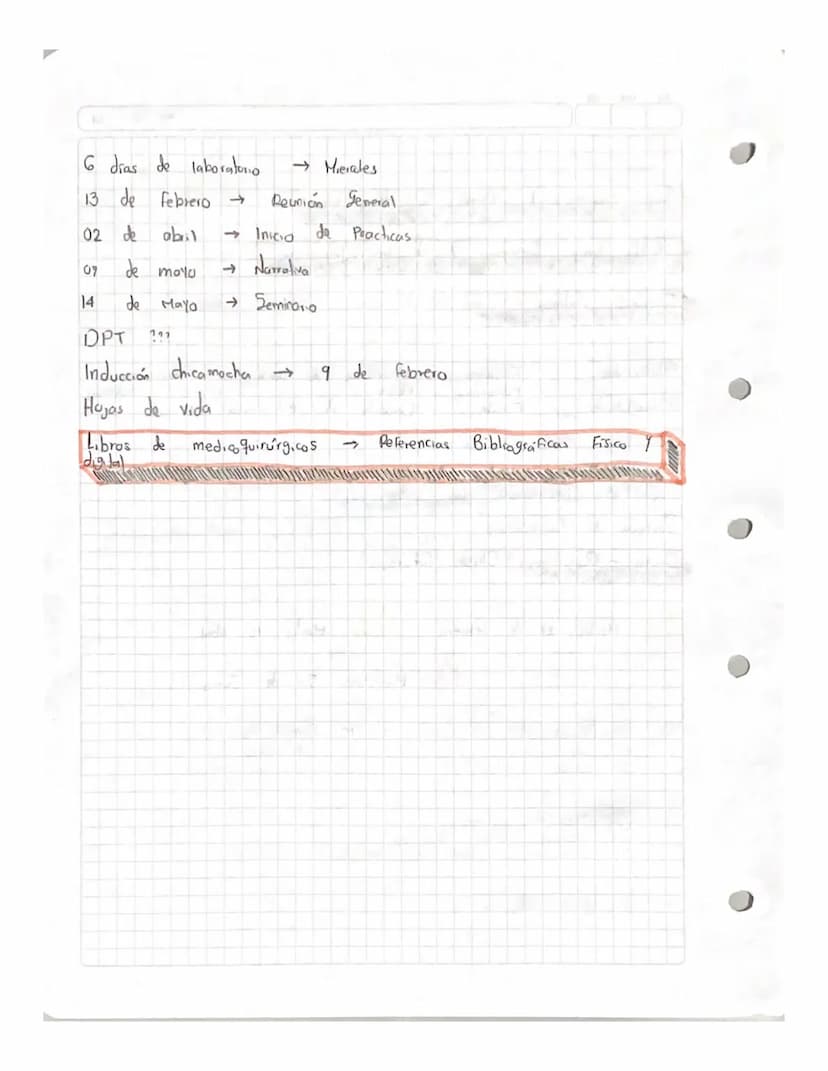 6 días de laboratorio → Mierales
13 de Febrero → Reunión General
02 de abril → Inicio de Practicas
07 de mayo → Narrativa
14 de Mayo → Seminario
DPT ???
Inducción chicamocha → 9 de febrero
Hojas de vida
Libros de medicoquirúrgicos → Referencias Bibliográficas Físico y
digital